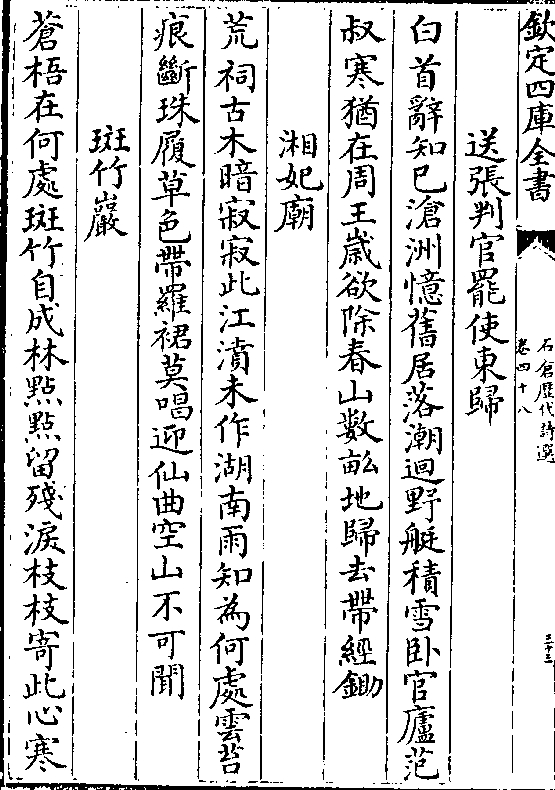 欽定四庫全書
石倉歷代詩選
卷四十八
三十三
送張判官罷使東歸
白首辭知已滄洲憶舊居落潮迴野艇積雪卧官廬范
叔寒猶在周王嵗欲除春山數畝地歸去帶經鋤
湘妃廟
荒祠古木暗寂寂此江濆未作湖南雨知為何處雲苔
痕斷珠履草色帶羅裙莫唱迎仙曲空山不可聞
斑竹巖
蒼梧在何處斑竹自成林點點留殘淚枝枝寄此心寒